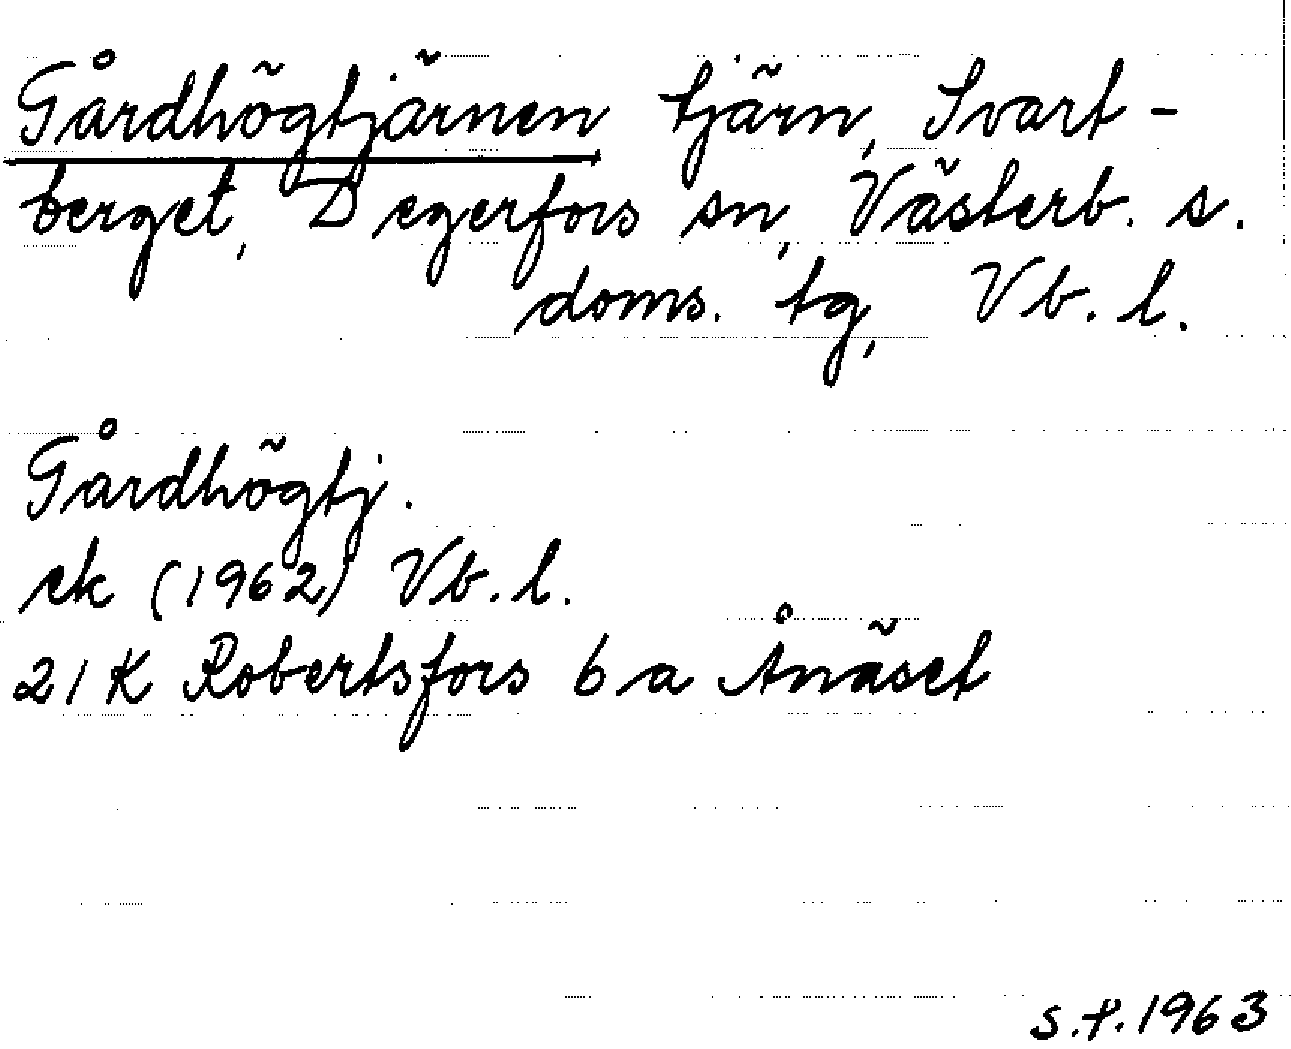 Gårdhögtjärnen tjärn, Svart-
berget, Degerfors sn, Västerb. s.
doms. tg, Vb. l.
Gårdhögtj.
ek (1962) Vb. l.
21 K Robertsfors 6 a Ånäset
s.f. 1963